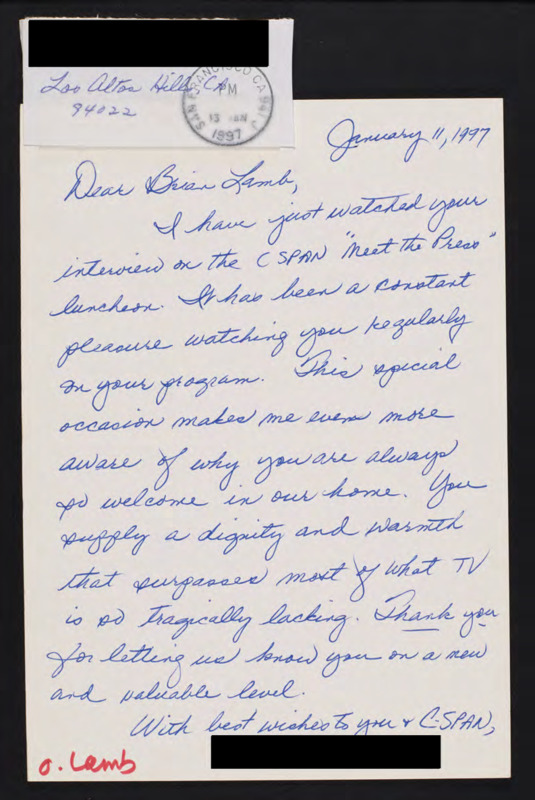 Los Altos Hills CA
94022
SAN FRANCISCO CA 941
PM
13 JAN
1997
January 11, 1997
Dear Brian Lamb,
I have just watched your
interview on the C SPAN "Meet the Press"
luncheon. It has been a constant
pleasure watching you regularly
on your program. This special
occasion makes me even more
aware of why you are always
so welcome in our home. You
supply a dignity and warmth
that surpasses most of what TV
is so tragically lacking. Thank you
for letting us know you on a new
and valuable level.
With best wishes to you & C-SPAN,
o. Lamb